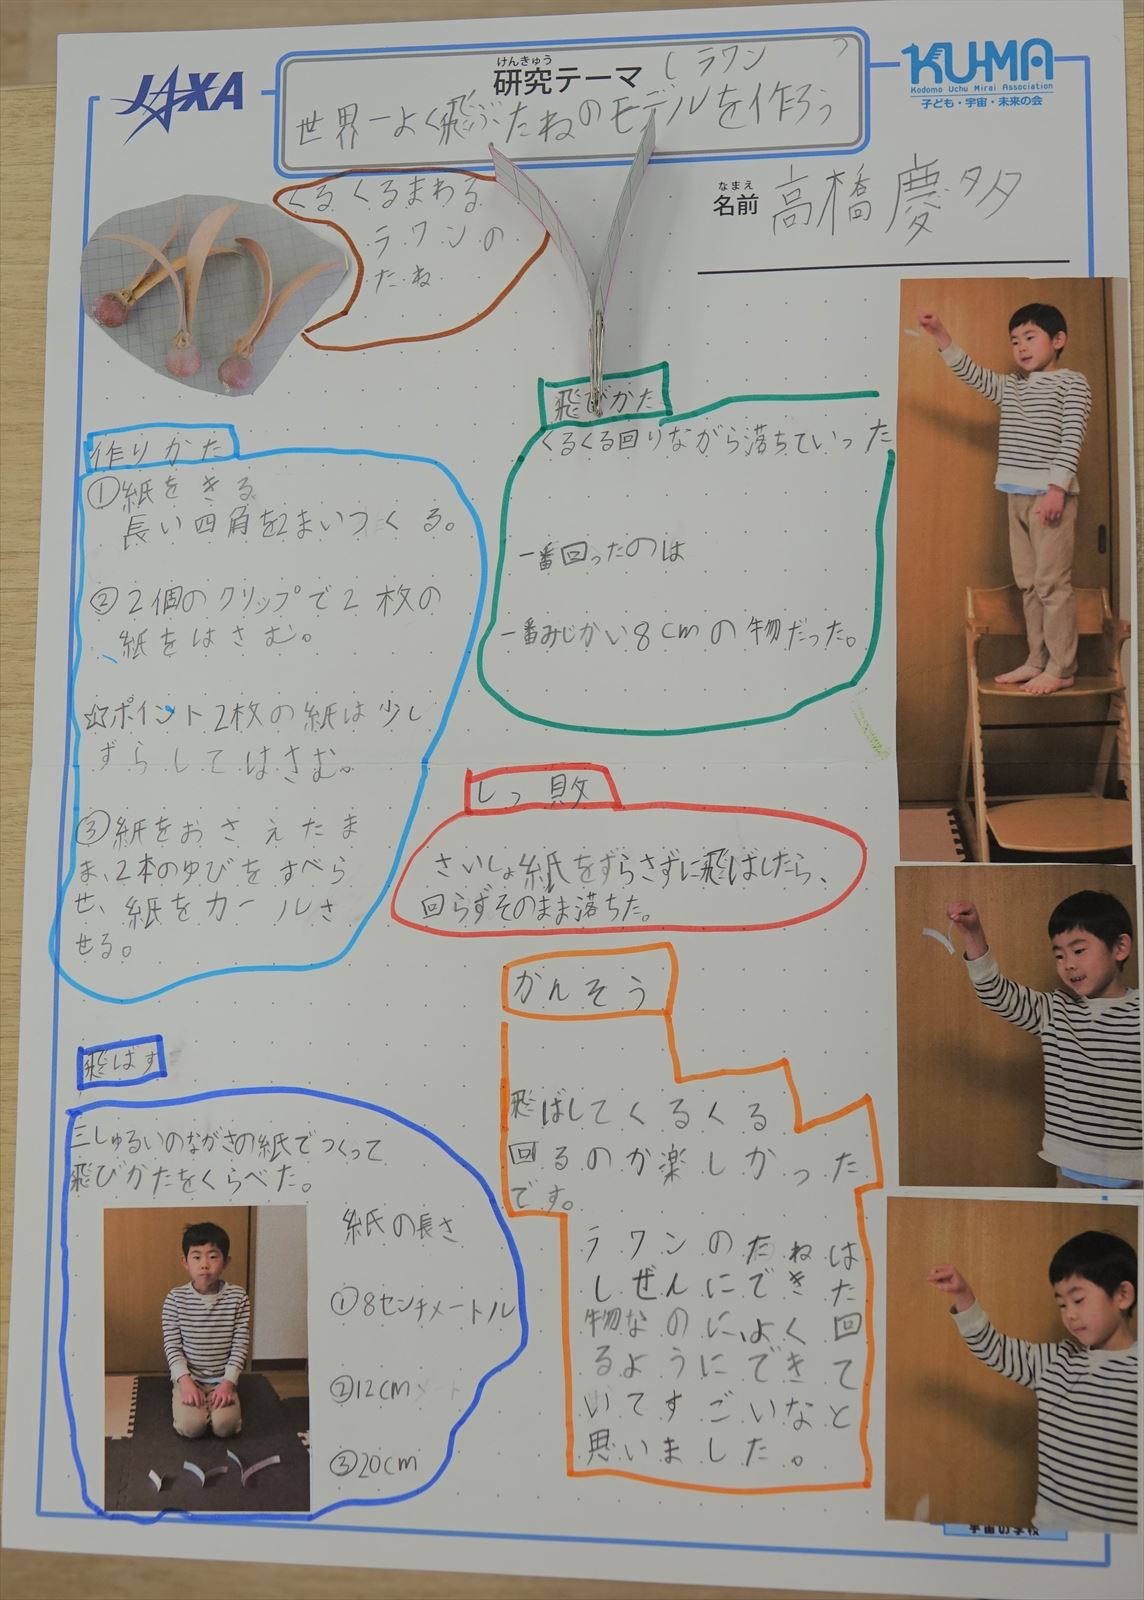 JAXA
けんきゅう
研究テーマ
(ラワン)
世界一よく飛ぶたねのモデルを作ろう
KU-MA
Kodomo Uchu Mirai Association
子ども・宇宙・未来の会
なまえ
名前 高橋慶多
くるくるまわる
ラワンの
たね
作りかた
①紙をきる
長い四角を2まいつくる。
②2個のクリップで2枚の
紙をはさむ。
☆ポイント2枚の紙は少し
ずらしてはさむ。
③紙をおさえたま
ま、2本のゆびをすべら
せ、紙をカールさ
せる。
飛びかた
くるくる回りながら落ちていった
一番回ったのは
一番みじかい8cmの物だった。
しっ敗
さいしょ紙をずらさずに飛ばしたら、
回らずそのまま落ちた。
飛ばす
三しゅるいのながさの紙でつくって
飛びかたをくらべた。
紙の長さ
①8センチメートル
②12cm
③20cm
かんそう
飛ばしてくるくる
回るのか楽しかった
です。
ラワンのたねは
しぜんにできた
物なのに、よく回
るようにできて
いてすごいなと
思いました。
宇宙の学校